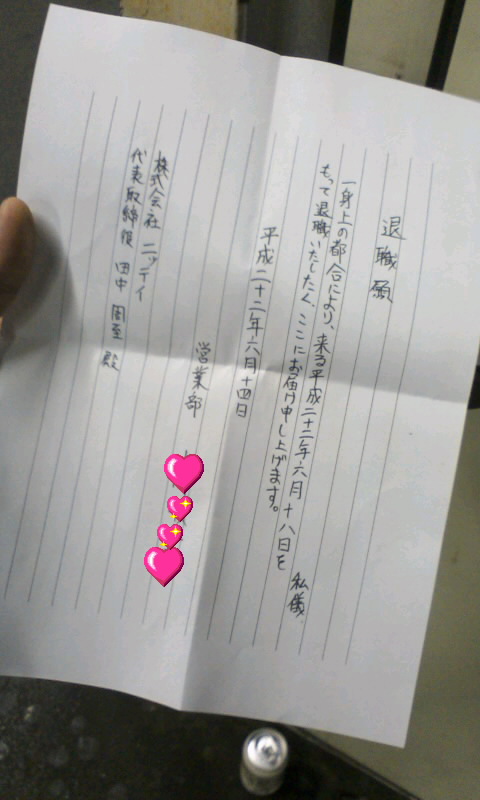 退職願
私儀
一身上の都合により、来る平成二十二年六月十八日を
もって退職いたしたく、ここにお届け申し上げます。
平成二十二年六月十四日
営業部
株式会社 ニッテイ
代表取締役 田中 周至 殿